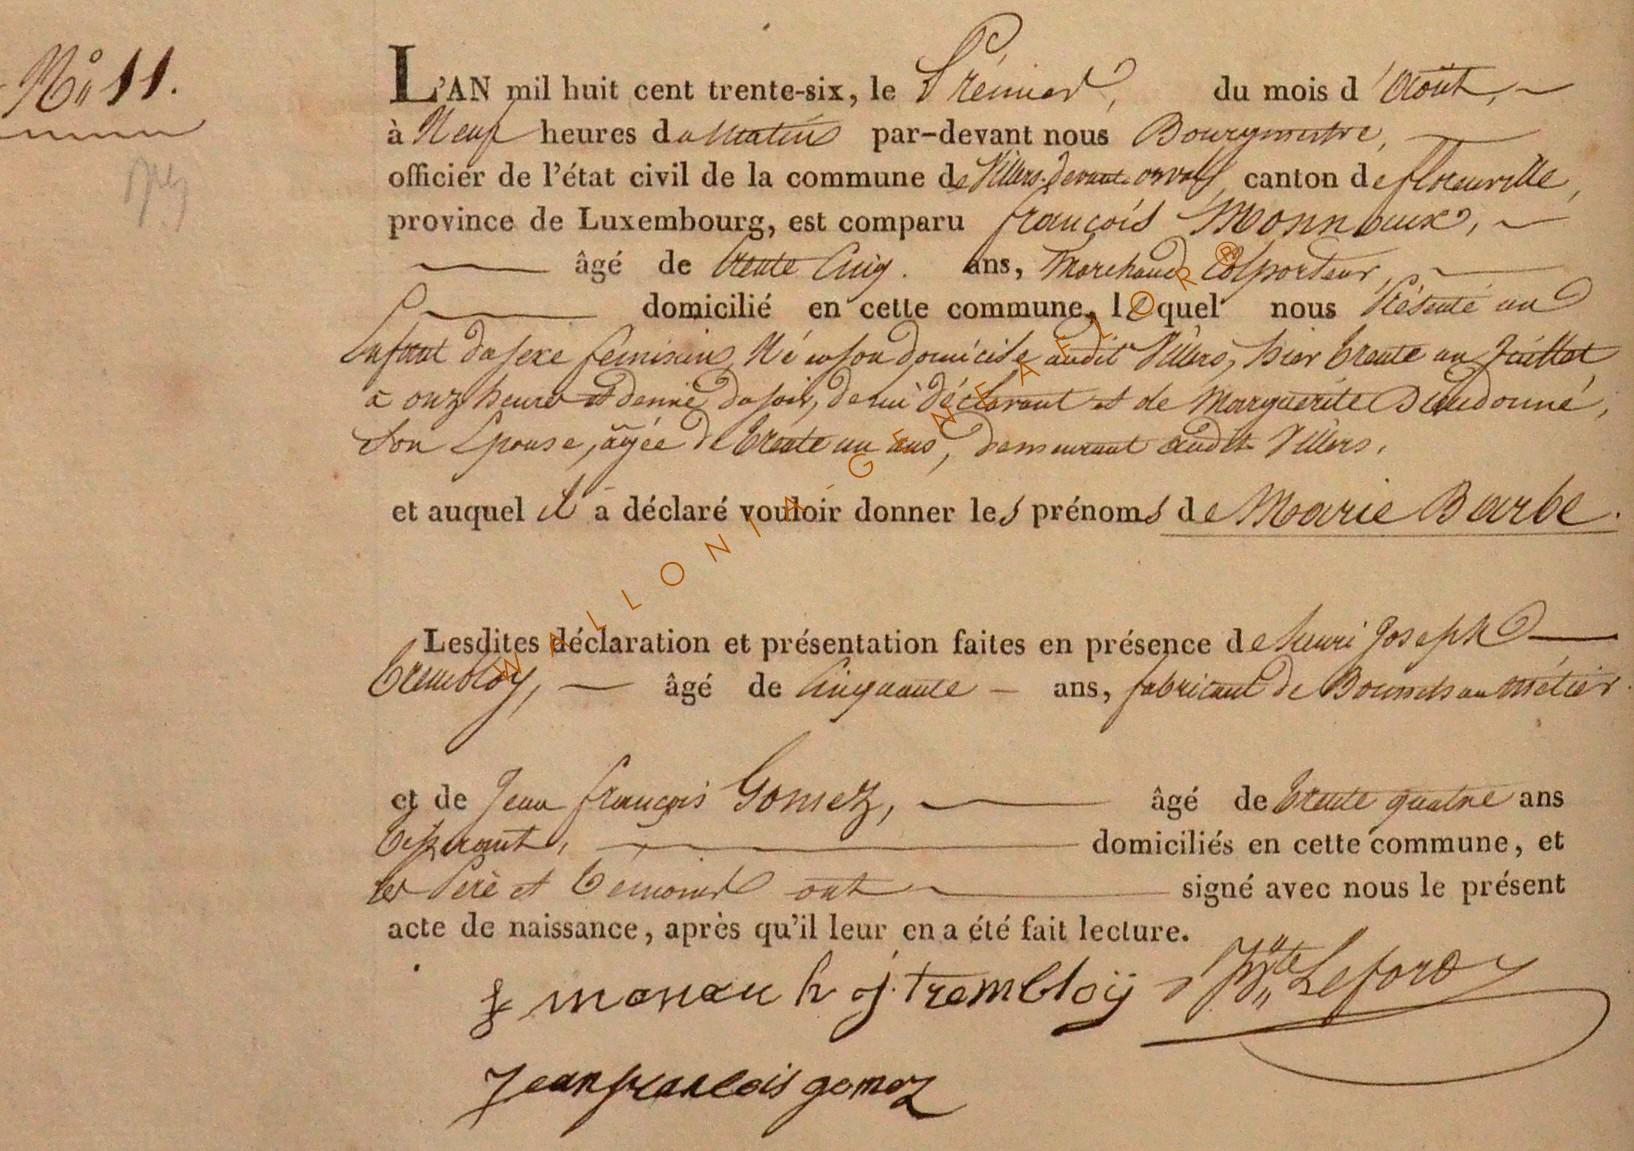 N° 11.
L'AN mil huit cent trente-six, le Prémier, du mois d'Août,
à Neuf heures du Matin par-devant nous Bourgmestre,
officier de l'état civil de la commune de Villers-devant-orval, canton de florenville,
province de Luxembourg, est comparu françois Monneaux,
âgé de trente Cinq. ans, Marchand Colporteur,
domicilié en cette commune, lequel nous Présenté un
Enfant du sexe feminin, Né en son domicile audit Villers, hier trente un Juillet
à onze heures et demie du soir, de lui déclarant et de Marguerite Dieudonné,
Son Epouse, agée de trente un ans, demeurant audit Villers.
et auquel il a déclaré vouloir donner les prénoms de Marie Barbe.
Lesdites déclaration et présentation faites en présence de henri Joseph
trembloy, âgé de Cinquante ans, fabricant de Bonnets au métier.
et de Jean françois Gomez, âgé de trente quatre ans
tisserant, domiciliés en cette commune, et
les Père et témoins ont signé avec nous le présent
acte de naissance, après qu'il leur en a été fait lecture.
f monau h j. trembloÿ Lefort
jean francois gomez
WALLONIA-GENEAFLOR®